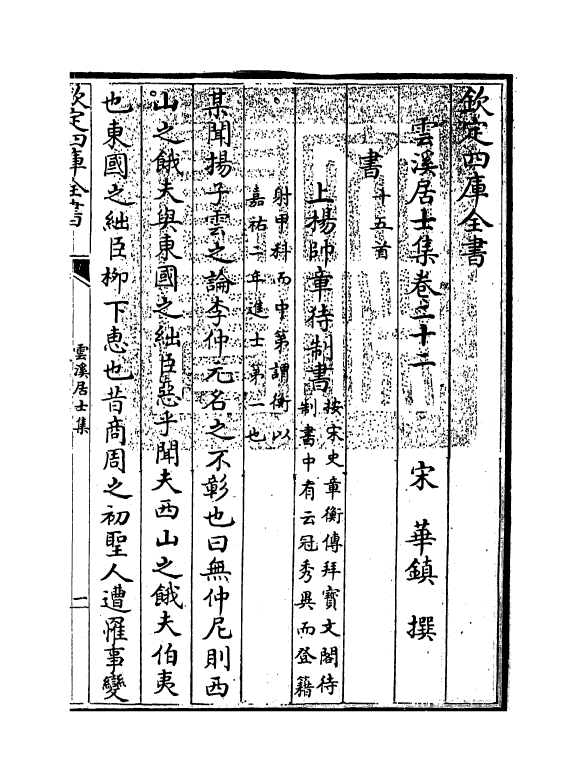 欽定四庫全書
雲溪居士集卷二十二
宋 華鎮 撰
書 十五首
上楊帥章待制書 按宋史章衡傳拜寶文閣待
制書中有云冠秀異而登籍
射甲科而中第謂衡以
嘉祐二年進士第一也
某聞揚子雲之論李仲元名之不彰也曰無仲尼則西
山之餓夫與東國之絀臣惡乎聞夫西山之餓夫伯夷
也東國之絀臣栁下惠也昔商周之初聖人遭罹事變
欽定四庫全書
雲溪居士集
一